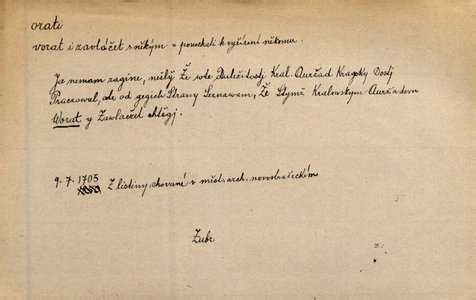 orati
vorat i zavláčet s někým = ponechati k vyřízení někomu.
Ja nemam zagine, nežly Že wte Duležitosty Kral. Auržad Kragsky Dosty
Praczowal, ale od gegich Strany Seznawam, Že Stymž Kralowskym Auržadem
Worat y Zawlaczet Mègj.
9. 7. 1705
Z listiny, chované v měst. arch. novobydžovském
Zubr